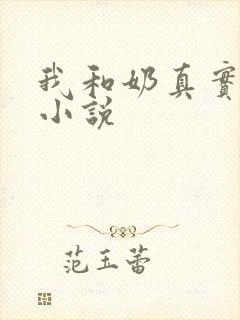 我和奶真實
小說
范玉蕾